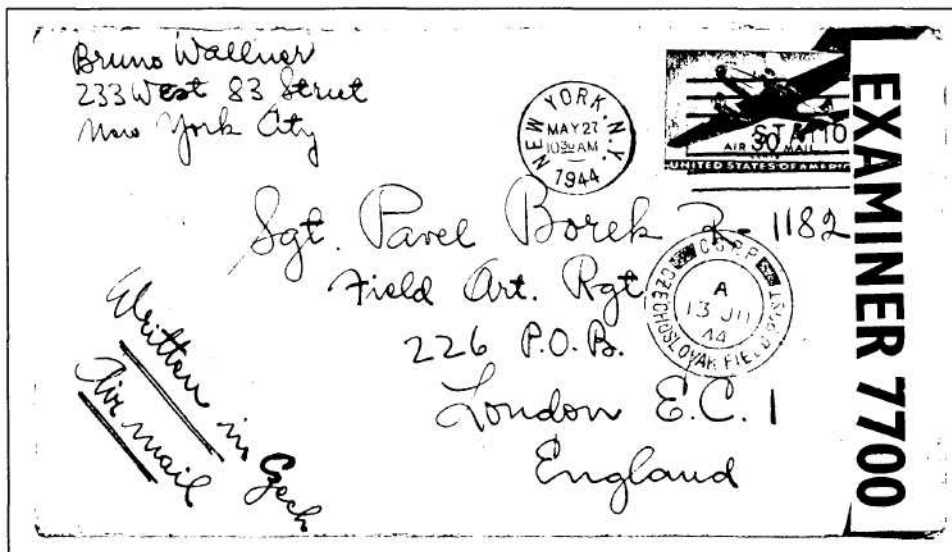 Bruno Wallner
233 West 83 Street
New York City
NEW YORK, N.Y.
MAY 27
10 30 AM
1944
STATIO
30
AIR MAIL
UNITED STATES OF AMERIC
EXAMINER 7700
Sgt. Pavel Borek R-1182
Field Art. Rgt.
226 P.O.B.
London E.C. 1
England
CZECHOSLOVAK FIELD POST
A
13 JU
44
Written in Czech
Air mail